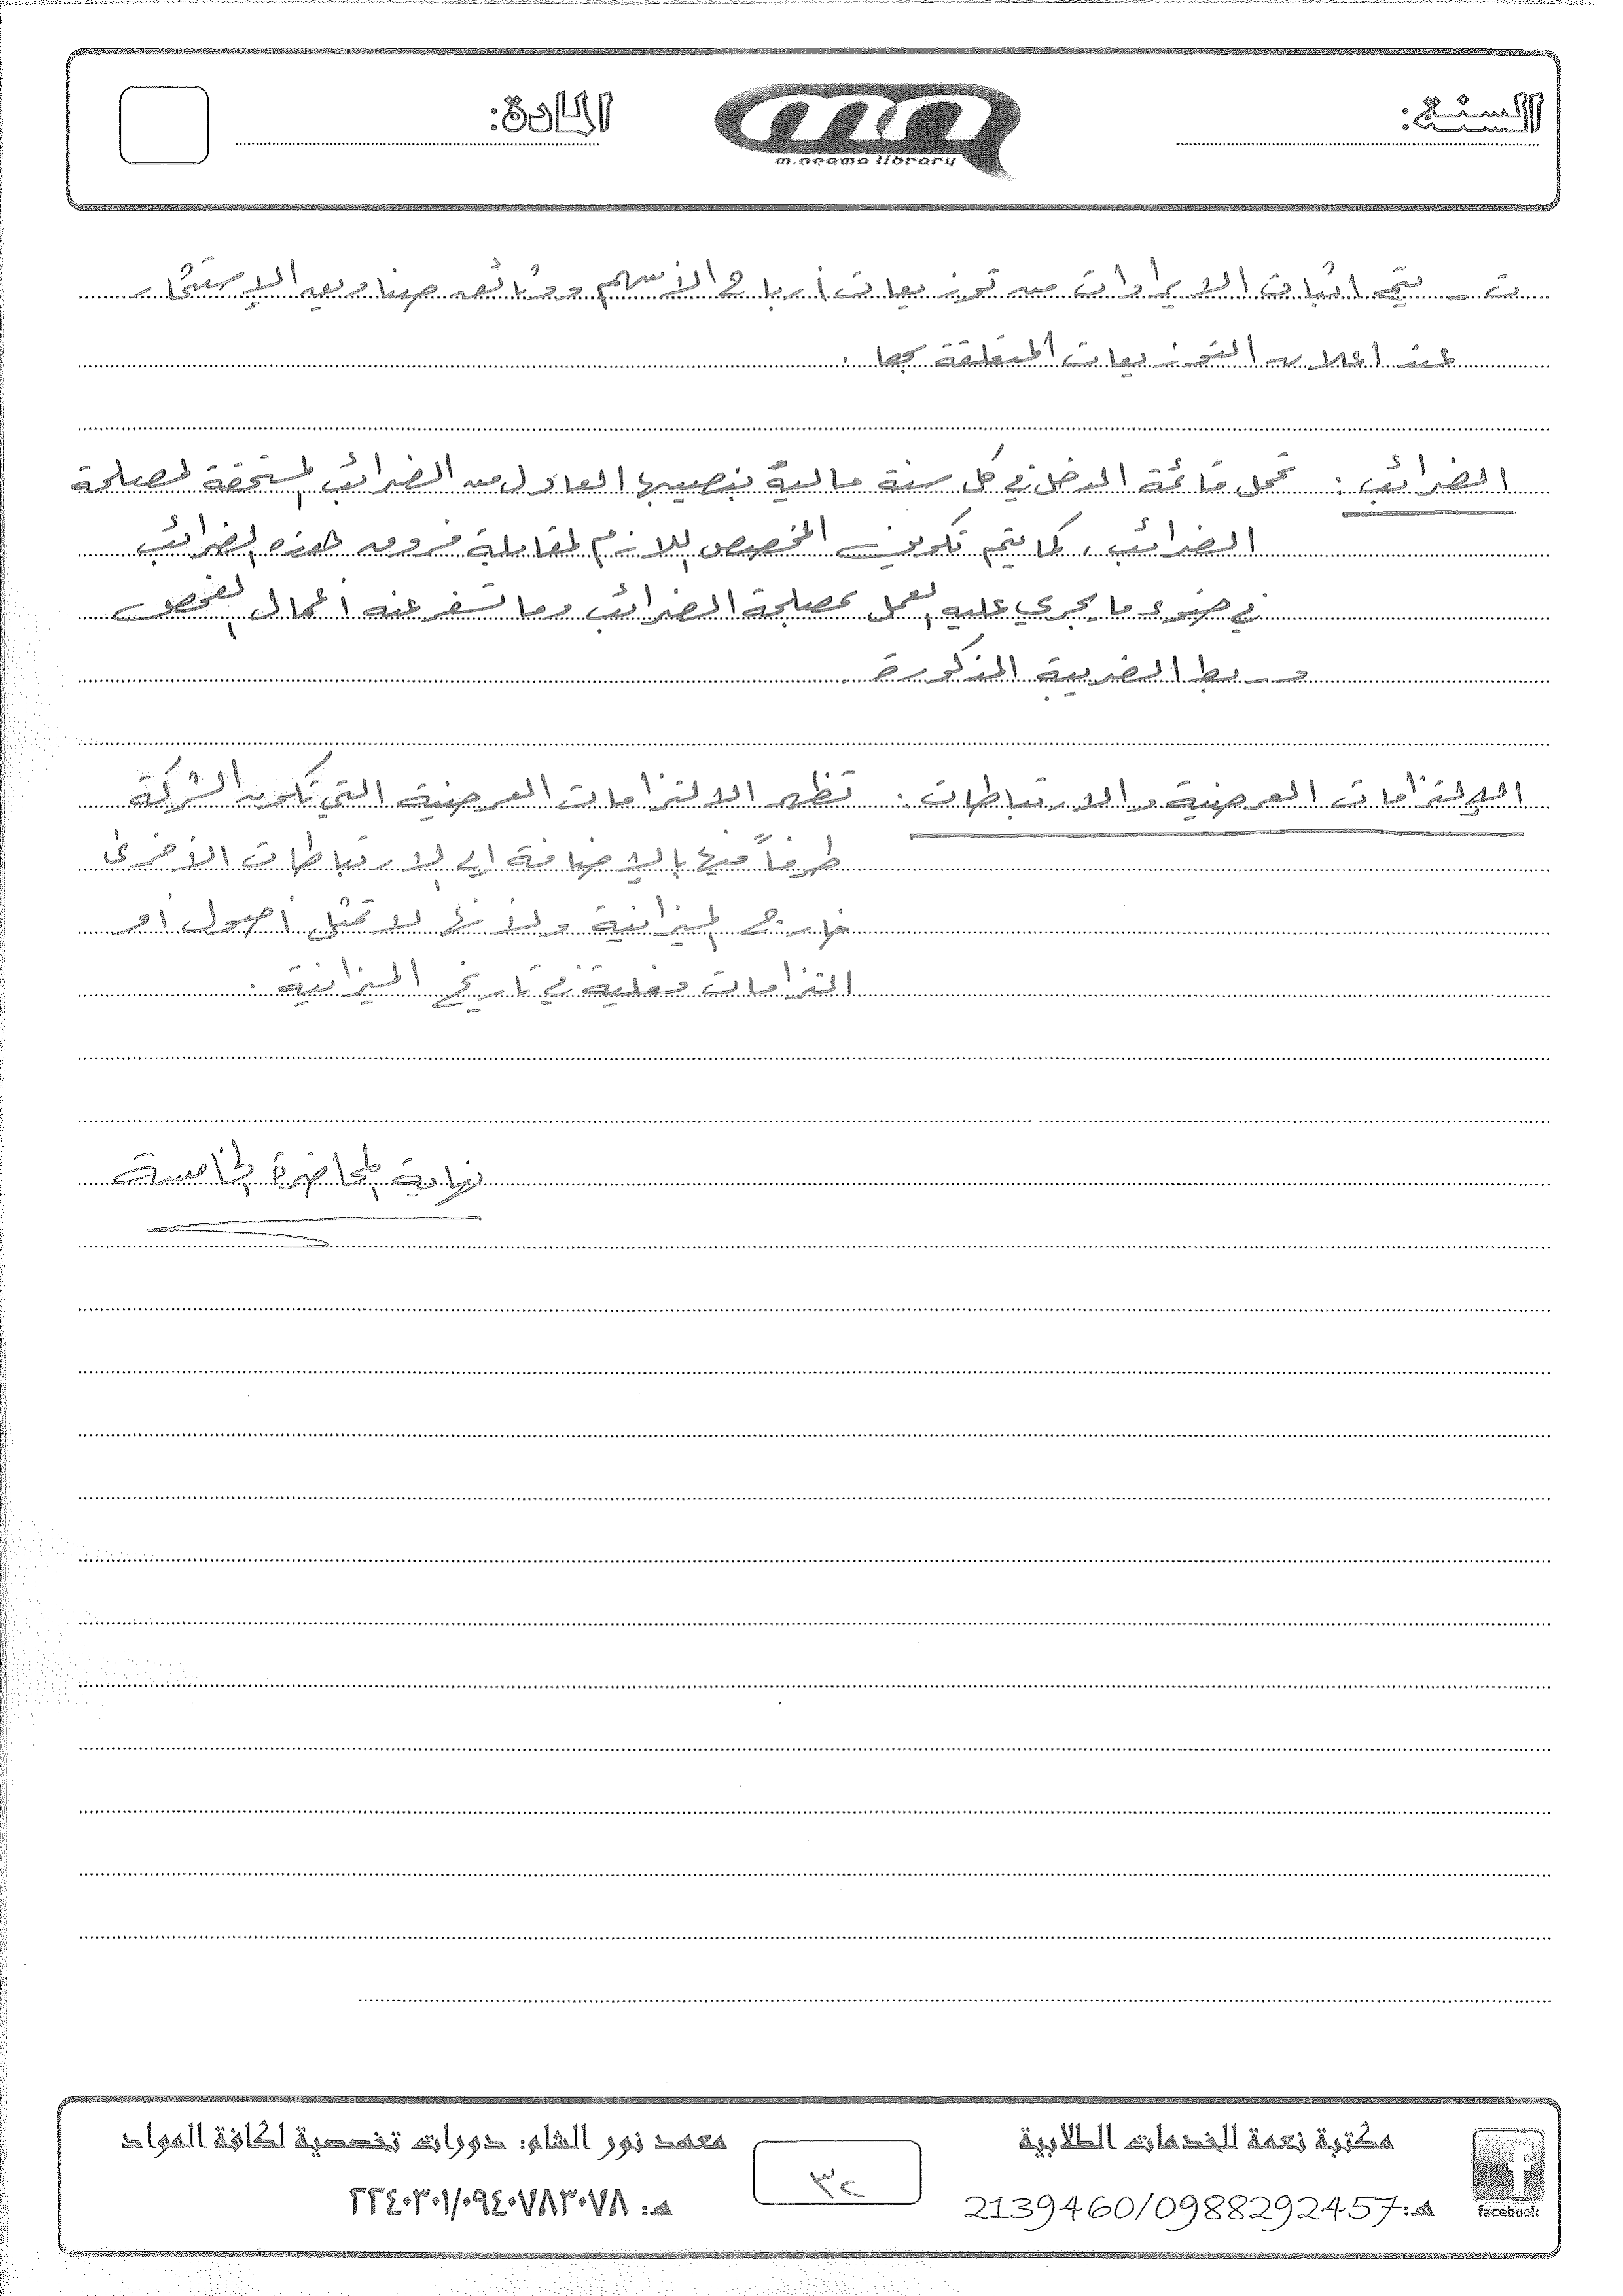 السنة:
المادة:
m.neama library
ت - يتم اثبات الايرادات من توزيعات أرباح الأسهم ووثائق صناديق الإستثمار
عند اعلان التوزيعات المتعلقة بها .
الضرائب : تحمل قائمة الدخل في كل سنة مالية بنصيبها العادل من الضرائب المستحقة لمصلحة
الضرائب ، كما يتم تكوين المخصص اللازم لمقابلة فروق هذه الضرائب
في ضوء ما يجري عليه العمل بمصلحة الضرائب وما تسفر عنه أعمال الفحص
وربط الضريبة المذكورة .
الإلتزامات العرضية والارتباطات . تظهر الالتزامات العرضية التي تكون الشركة
طرفاً فيها بالإضافة إلى الارتباطات الأخرى
خارج الميزانية ولأنها لا تمثل أصول أو
التزامات فعلية في تاريخ الميزانية .
نهاية المحاضرة الخامسة
مكتبة نعمة للخدمات الطلابية
هـ:2139460/0988292457
facebook
٣٢
معهد نور الشام: دورات تخصصية لكافة المواد
هـ: ٢٢٤٠٣٠١/٠٩٤٠٧٨٣٠٧٨